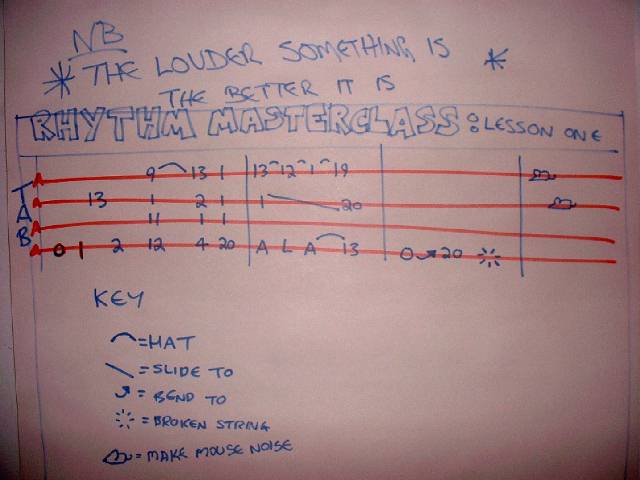 NB
* THE LOUDER SOMETHING IS *
THE BETTER IT IS
RHYTHM MASTERCLASS: LESSON ONE
TAB
9 13 1 13 12 1 19
13 1 2 1 1 20
11 1 1
0 1 2 12 4 20 A L A 13 0 20
KEY
= HAT
= SLIDE TO
= BEND TO
= BROKEN STRING
= MAKE MOUSE NOISE